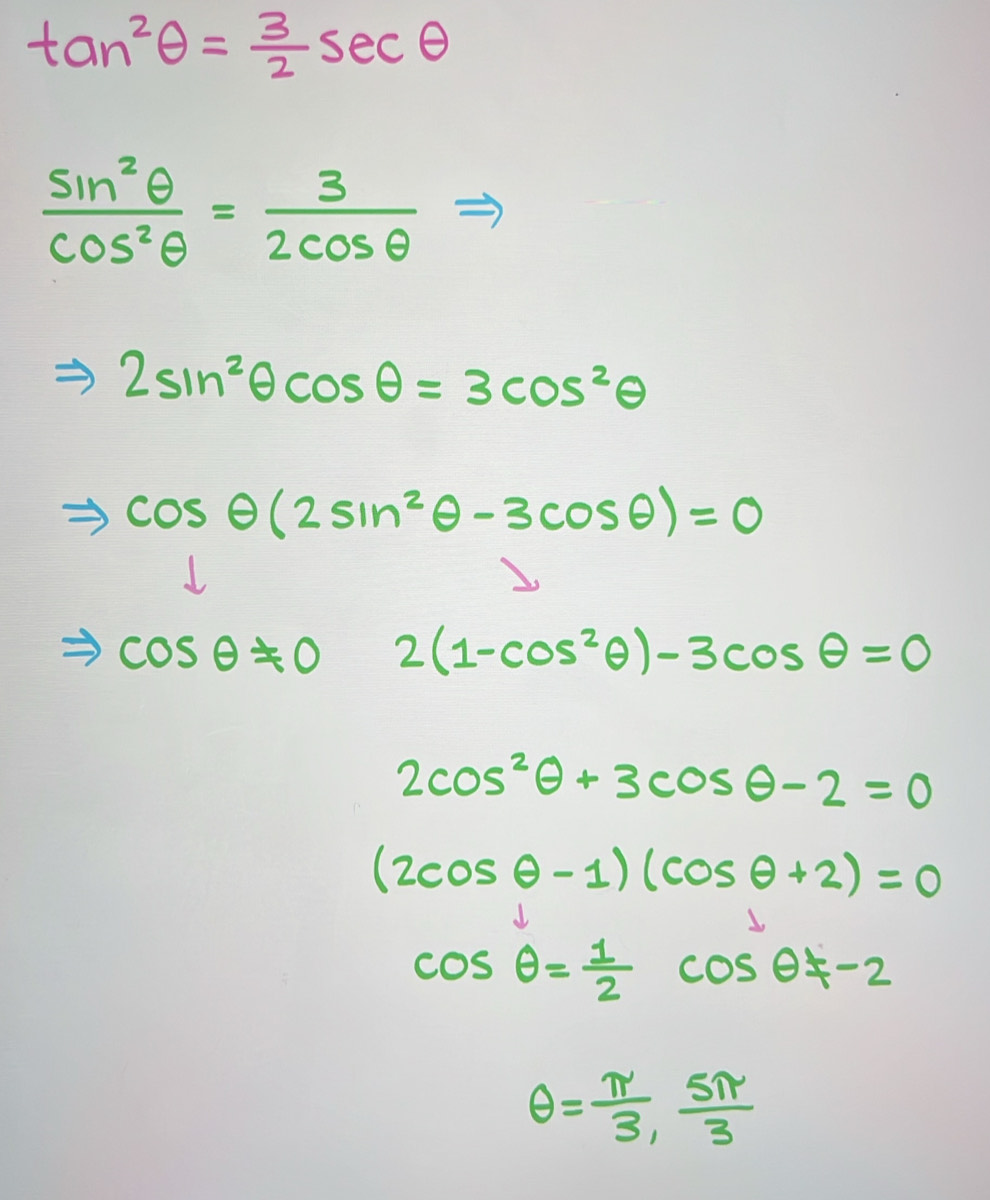 tan²θ = 3/2 sec θ
sin²θ/cos²θ = 3/(2cos θ) ⇒
⇒ 2sin²θ cos θ = 3cos²θ
⇒ cos θ(2sin²θ-3cosθ) = 0
↓ ↘
⇒ cos θ ≠ 0 2(1-cos²θ)-3cos θ = 0
2cos²θ + 3cos θ - 2 = 0
(2cos θ - 1)(cos θ + 2) = 0
↓ ↘
cos θ = 1/2 cos θ ≠ -2
θ = π/3, 5π/3